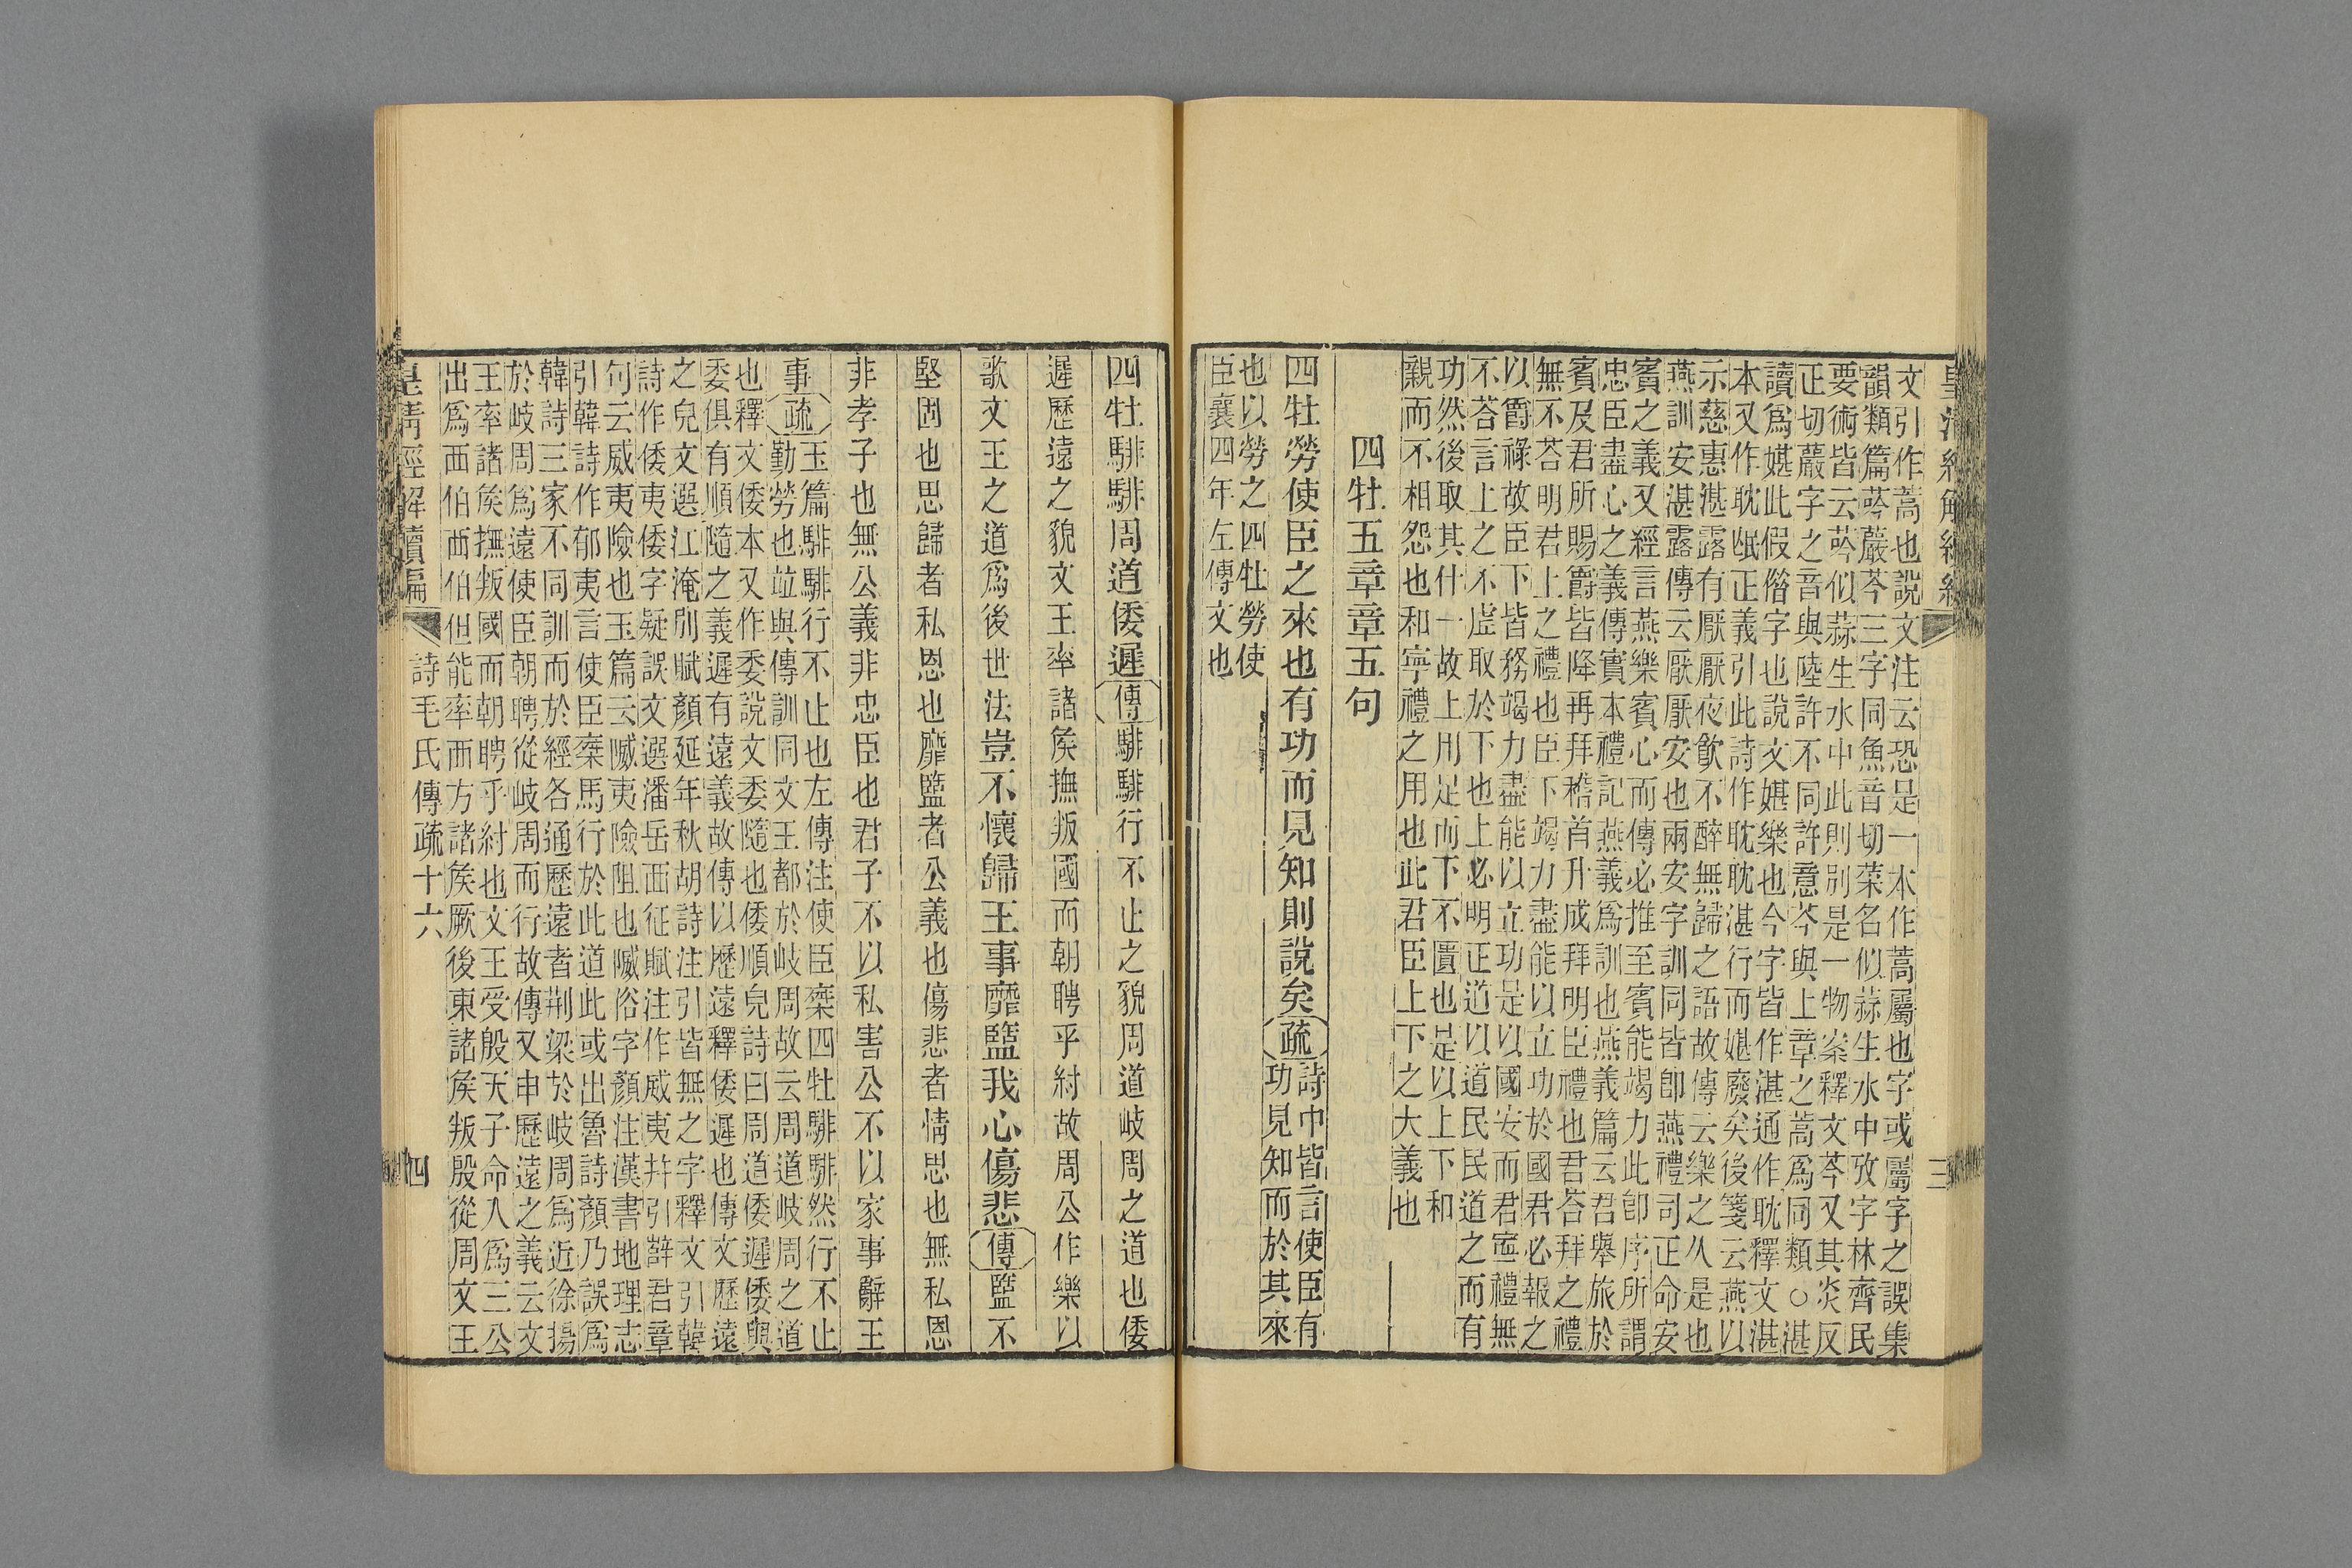 皇清經解續編
三
文引作蒿也說文注云恐是一本作蒿屬也字或屬字之誤集
韻類篇蒶䕾芩三字同魚音切菜名似蒜生水中攷字林齊民
要術皆云䓄似蒜生水中此則別是一物案釋文芩又其炎反
正切䕾字之音與陸許不同許意芩與上章之蒿爲同類○湛
讀爲媅此假偺字也說文媅樂也今字皆作湛通作耽釋文湛
本又作耽㽎正義引此詩作耽耽湛行而媅廢矣後箋云燕以
示慈惠湛露有厭厭夜飮不醉無歸之語故傳云樂之久是也
燕訓安湛露傳云厭厭安也兩安字訓同皆卽燕禮司正命安
賓之義又經言燕樂賓心而傳必推至賓能竭力此卽序所謂
忠臣盡心之義傳實本禮記燕義爲訓也燕義篇云君舉旅於
賓及君所賜爵皆降再拜稽首升成拜明臣禮也君荅拜之禮
無不荅明君上之禮也臣下竭力盡能以立功於國君必報之
以爵祿故臣下皆務竭力盡能以立功是以國安而君寍禮無
不荅言上之不虛取於下也上必明正道以道民民道之而有
功然後取其什一故上用足而下不匱也是以上下和
親而不相怨也和寧禮之用也此君臣上下之大義也
四牡五章章五句
四牡勞使臣之來也有功而見知則說矣疏詩中皆言使臣有
功見知而於其來
也以勞之四牡勞使
臣襄四年左傳文也
四牡騑騑周道倭遲傳騑騑行不止之貌周道岐周之道也倭
遲歷遠之貌文王率諸矦撫叛國而朝聘乎紂故周公作樂以
歌文王之道爲後世法豈不懷歸王事靡盬我心傷悲傳盬不
堅固也思歸者私恩也靡盬者公義也傷悲者情思也無私恩
非孝子也無公義非忠臣也君子不以私害公不以家事辭王
事疏玉篇騑騑行不止也左傳注使臣椉四牡騑騑然行不止
勤勞也竝與傳訓同文王都於岐周故云周道岐周之道
也釋文倭本又作委說文委隨也倭順皃詩曰周道倭遲倭與
委俱有順隨之義遲有遠義故傳以歷遠釋倭遲也傳文歷遠
之皃文選江淹別賦顏延年秋胡詩注引皆無之字釋文引韓
詩作倭夷倭字疑誤文選潘岳西征賦注作威夷幷引辥君章
句云威夷險也玉篇云隇夷險阻也隇俗字顏注漢書地理志
引韓詩作郁夷言使臣椉馬行於此道此或出魯詩顏乃誤爲
韓詩三家不同訓而於經各通歷遠者荆梁於岐周爲近徐揚
於岐周爲遠使臣朝聘從岐周而行故傳又申歷遠之義云文
王率諸矦撫叛國而朝聘乎紂也文王受殷天子命入爲三公
出爲西伯西伯但能率西方諸矦厥後東諸矦叛殷從周文王
皇清經解續編
詩毛氏傳疏十六
四